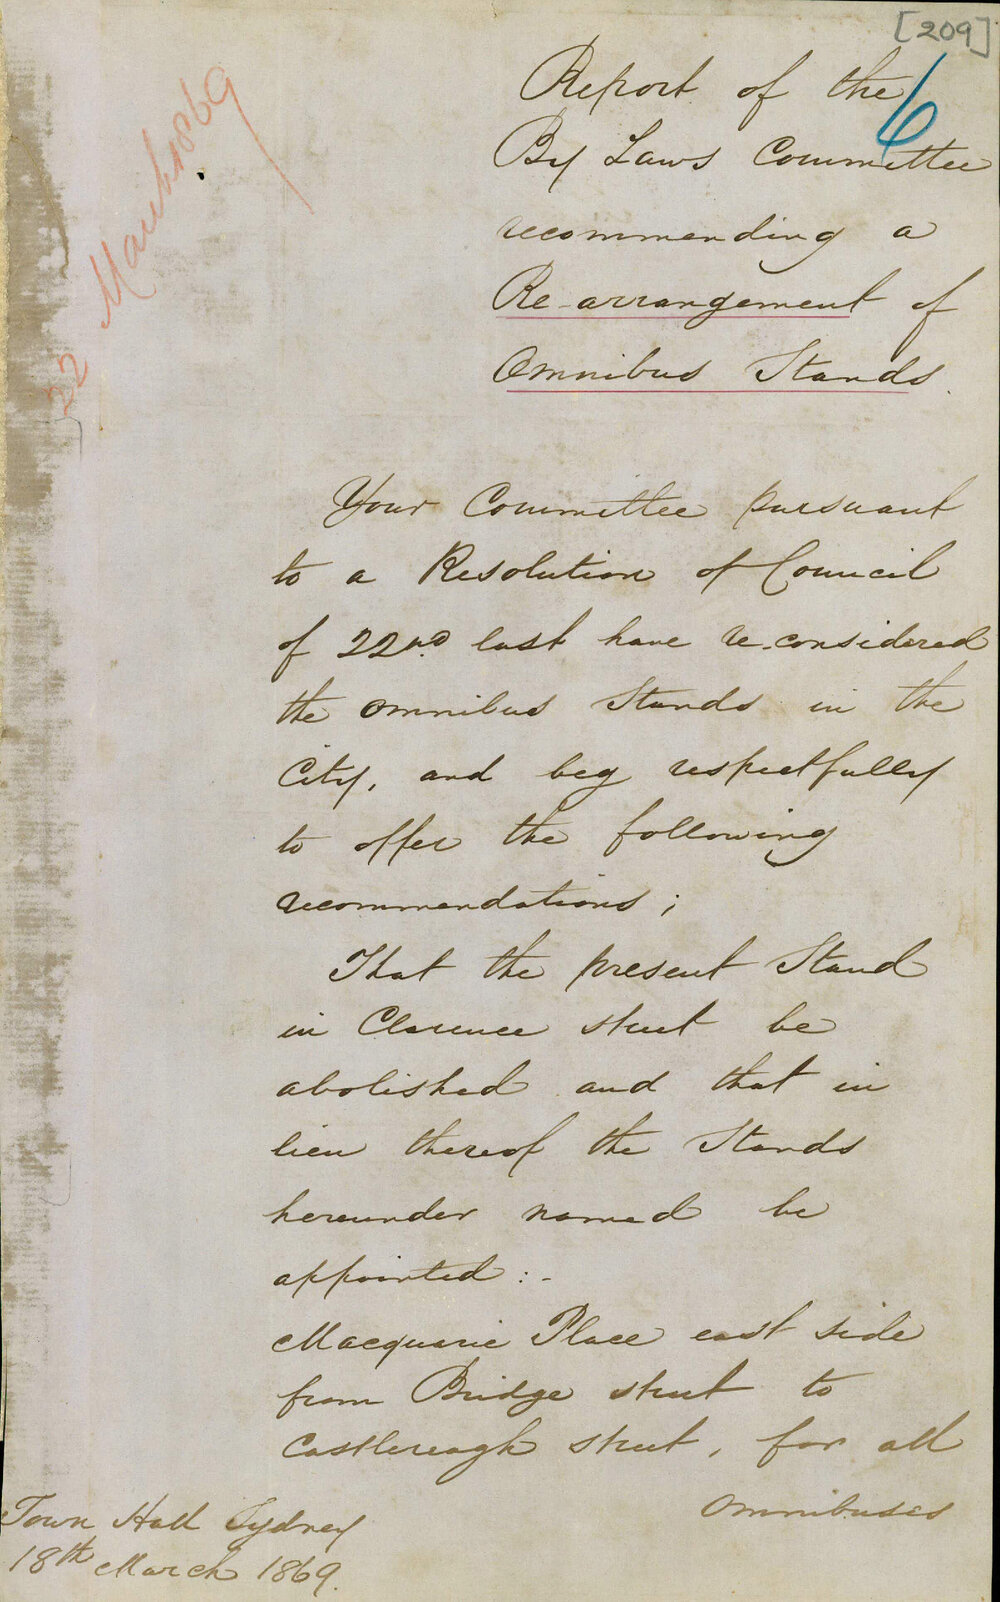 [209]
6
22 March 1869
Report of the
By Laws Committee
recommending a
Re-arrangement of
Omnibus Stands.
Your Committee pursuant
to a Resolution of Council
of 22nd last have re-considered
the omnibus Stands in the
City, and beg respectfully
to offer the following
recommendations;
That the present Stand
in Clarence street be
abolished and that in
lieu thereof the Stands
hereunder named be
appointed:-
Macquarie Place east side
from Bridge street to
Castlereagh street, for all
omnibuses
Town Hall Sydney
18th March 1869.